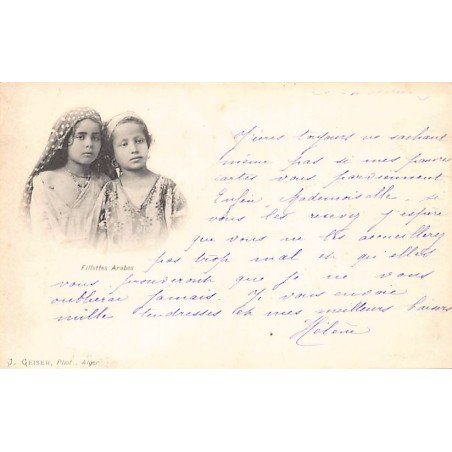 J'écris toujours ne sachant
même pas si mes pauvres
cartes vous parviennent
Enfin, Mademoiselle, si
vous les recevez j'espère
que vous ne les accueillerez
pas trop mal et qu'elles
vous prouveront que je ne vous
oublierai jamais. Je vous envoie
mille tendresses et mes meilleurs baisers
Hélène
Fillettes Arabes
J. GEISER, Phot. - Alger